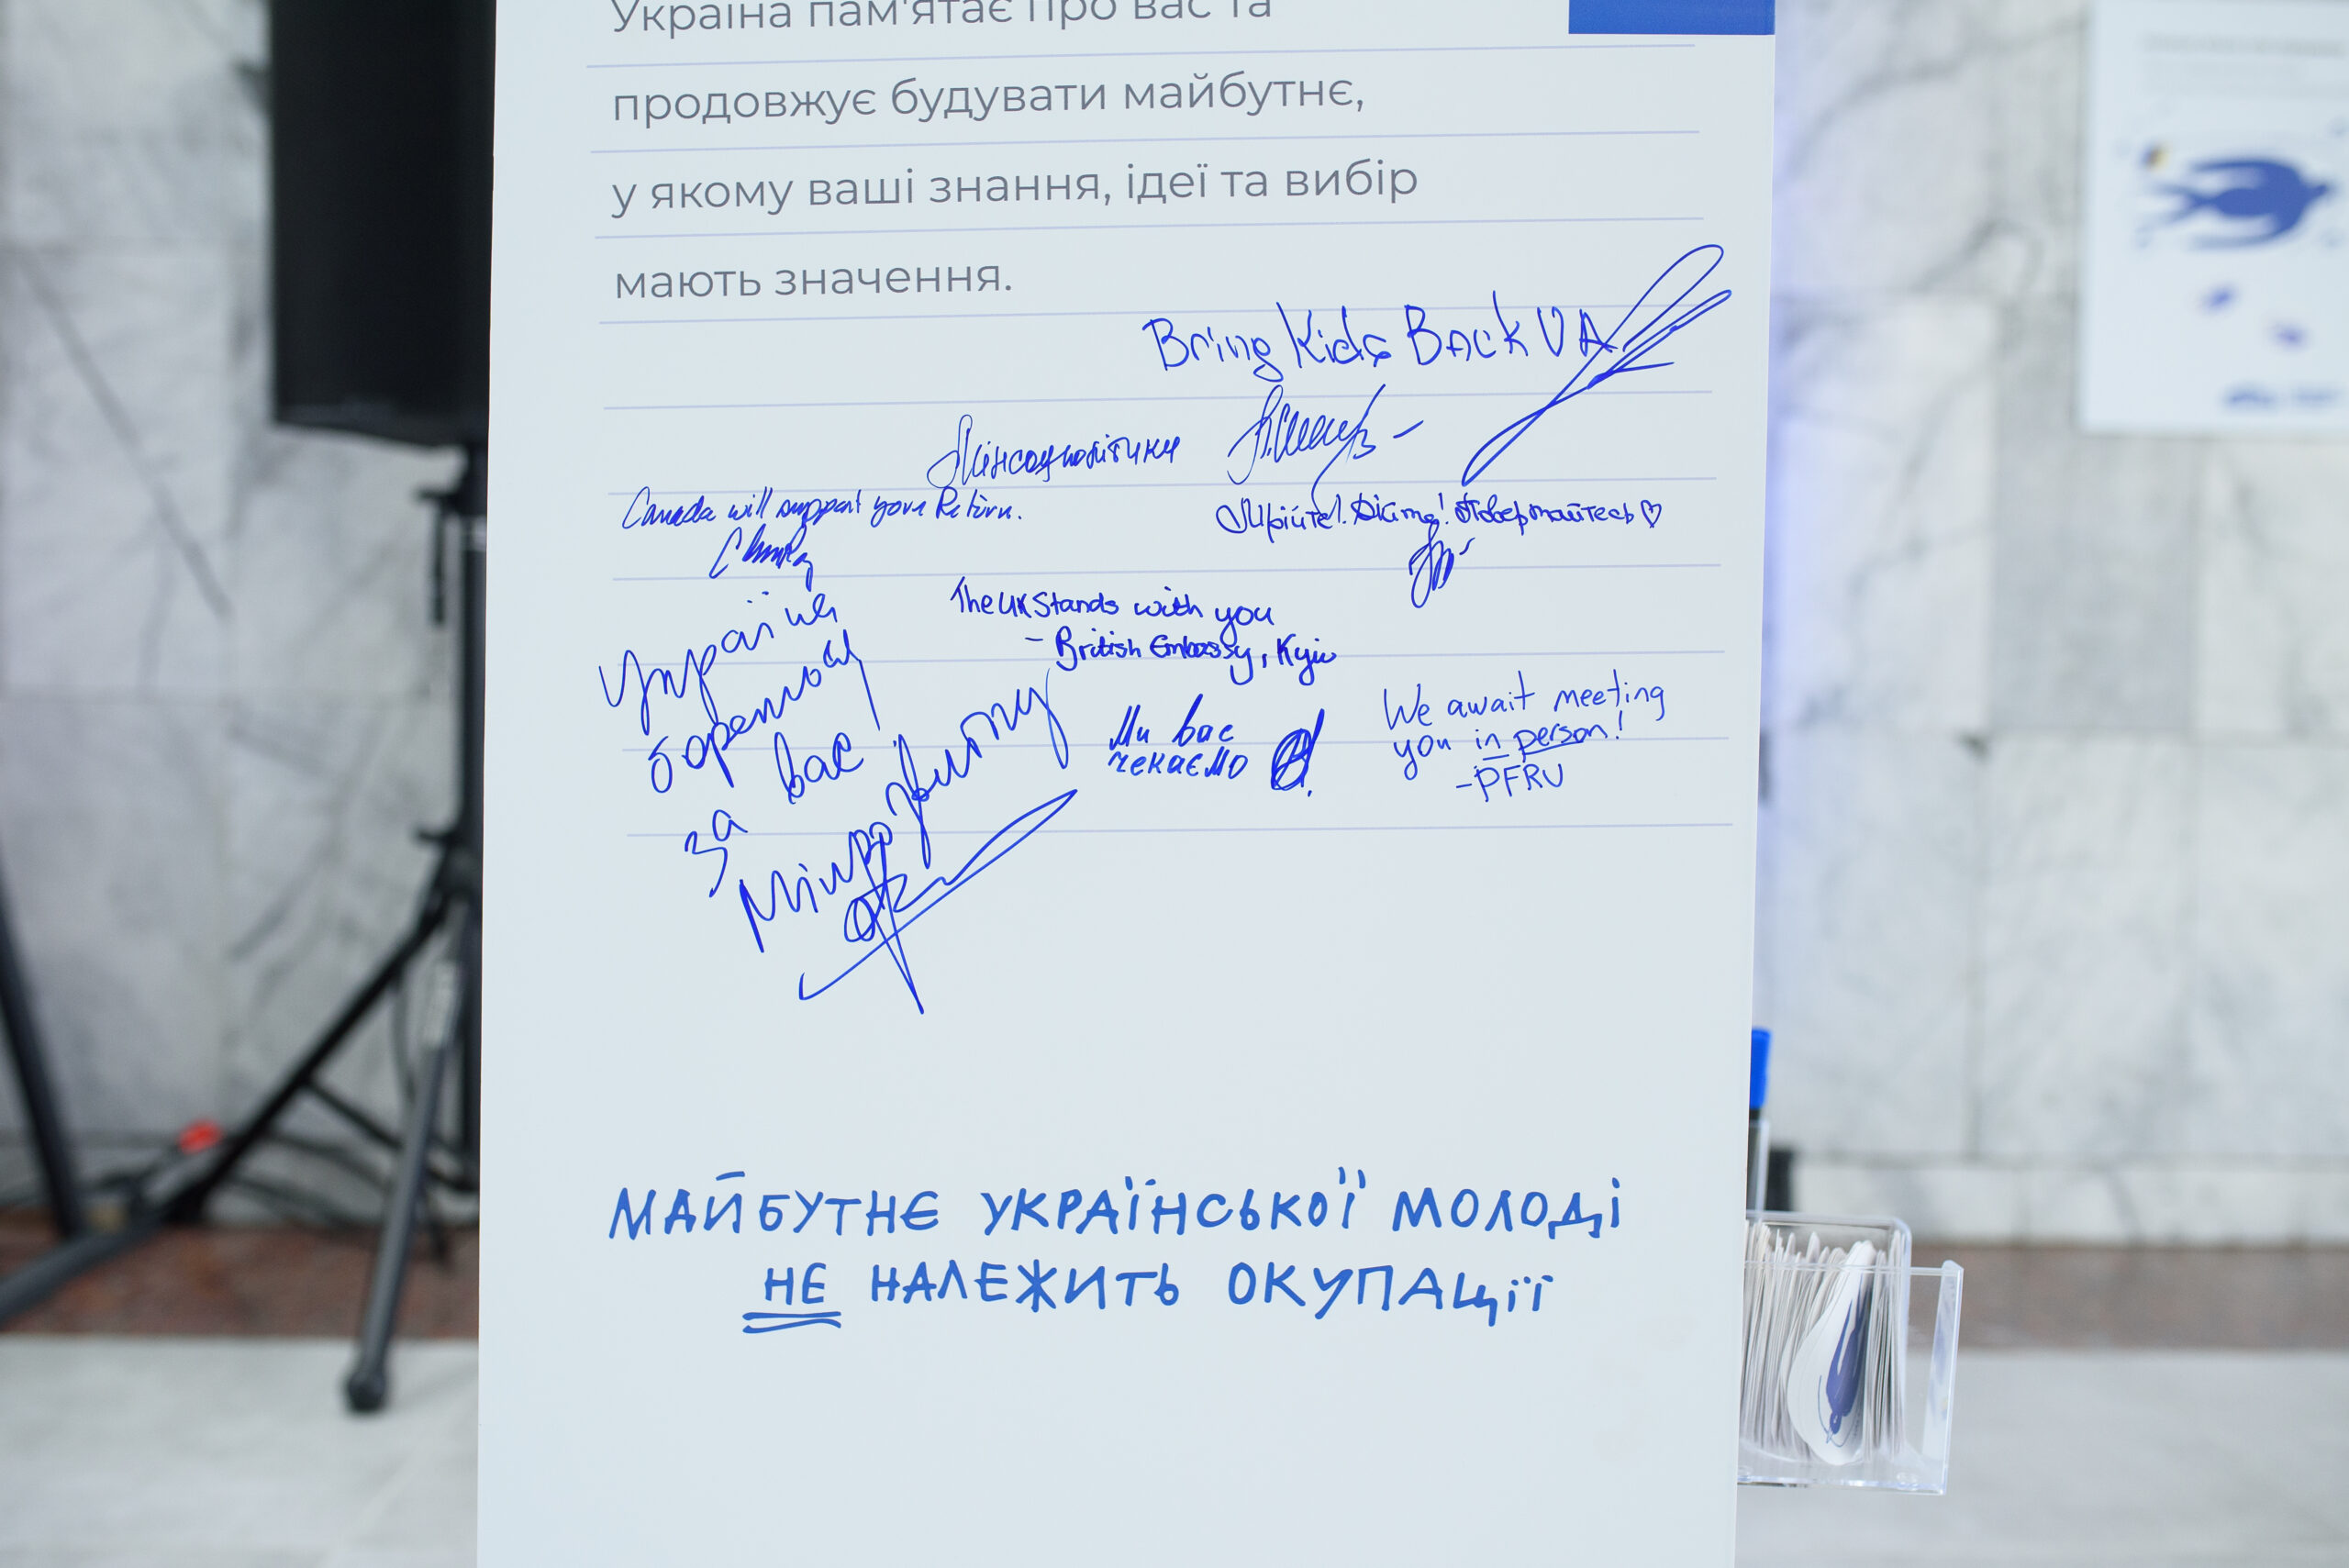 Україна пам'ятає про вас та
продовжує будувати майбутнє,
у якому ваші знання, ідеї та вибір
мають значення.
Bring Kids Back UA
Мінсоцполітики
Canada will support your Return.
Мрійте! Дійте! Повертайтесь ♡
The UK Stands with you
- British Embassy, Kyiv
Україна
бореться
за вас
Мінрозвитку
Ми вас
чекаємо
We await meeting
you in person!
-PFRU
МАЙБУТНЄ УКРАЇНСЬКОЇ МОЛОДІ
НЕ НАЛЕЖИТЬ ОКУПАЦІЇ